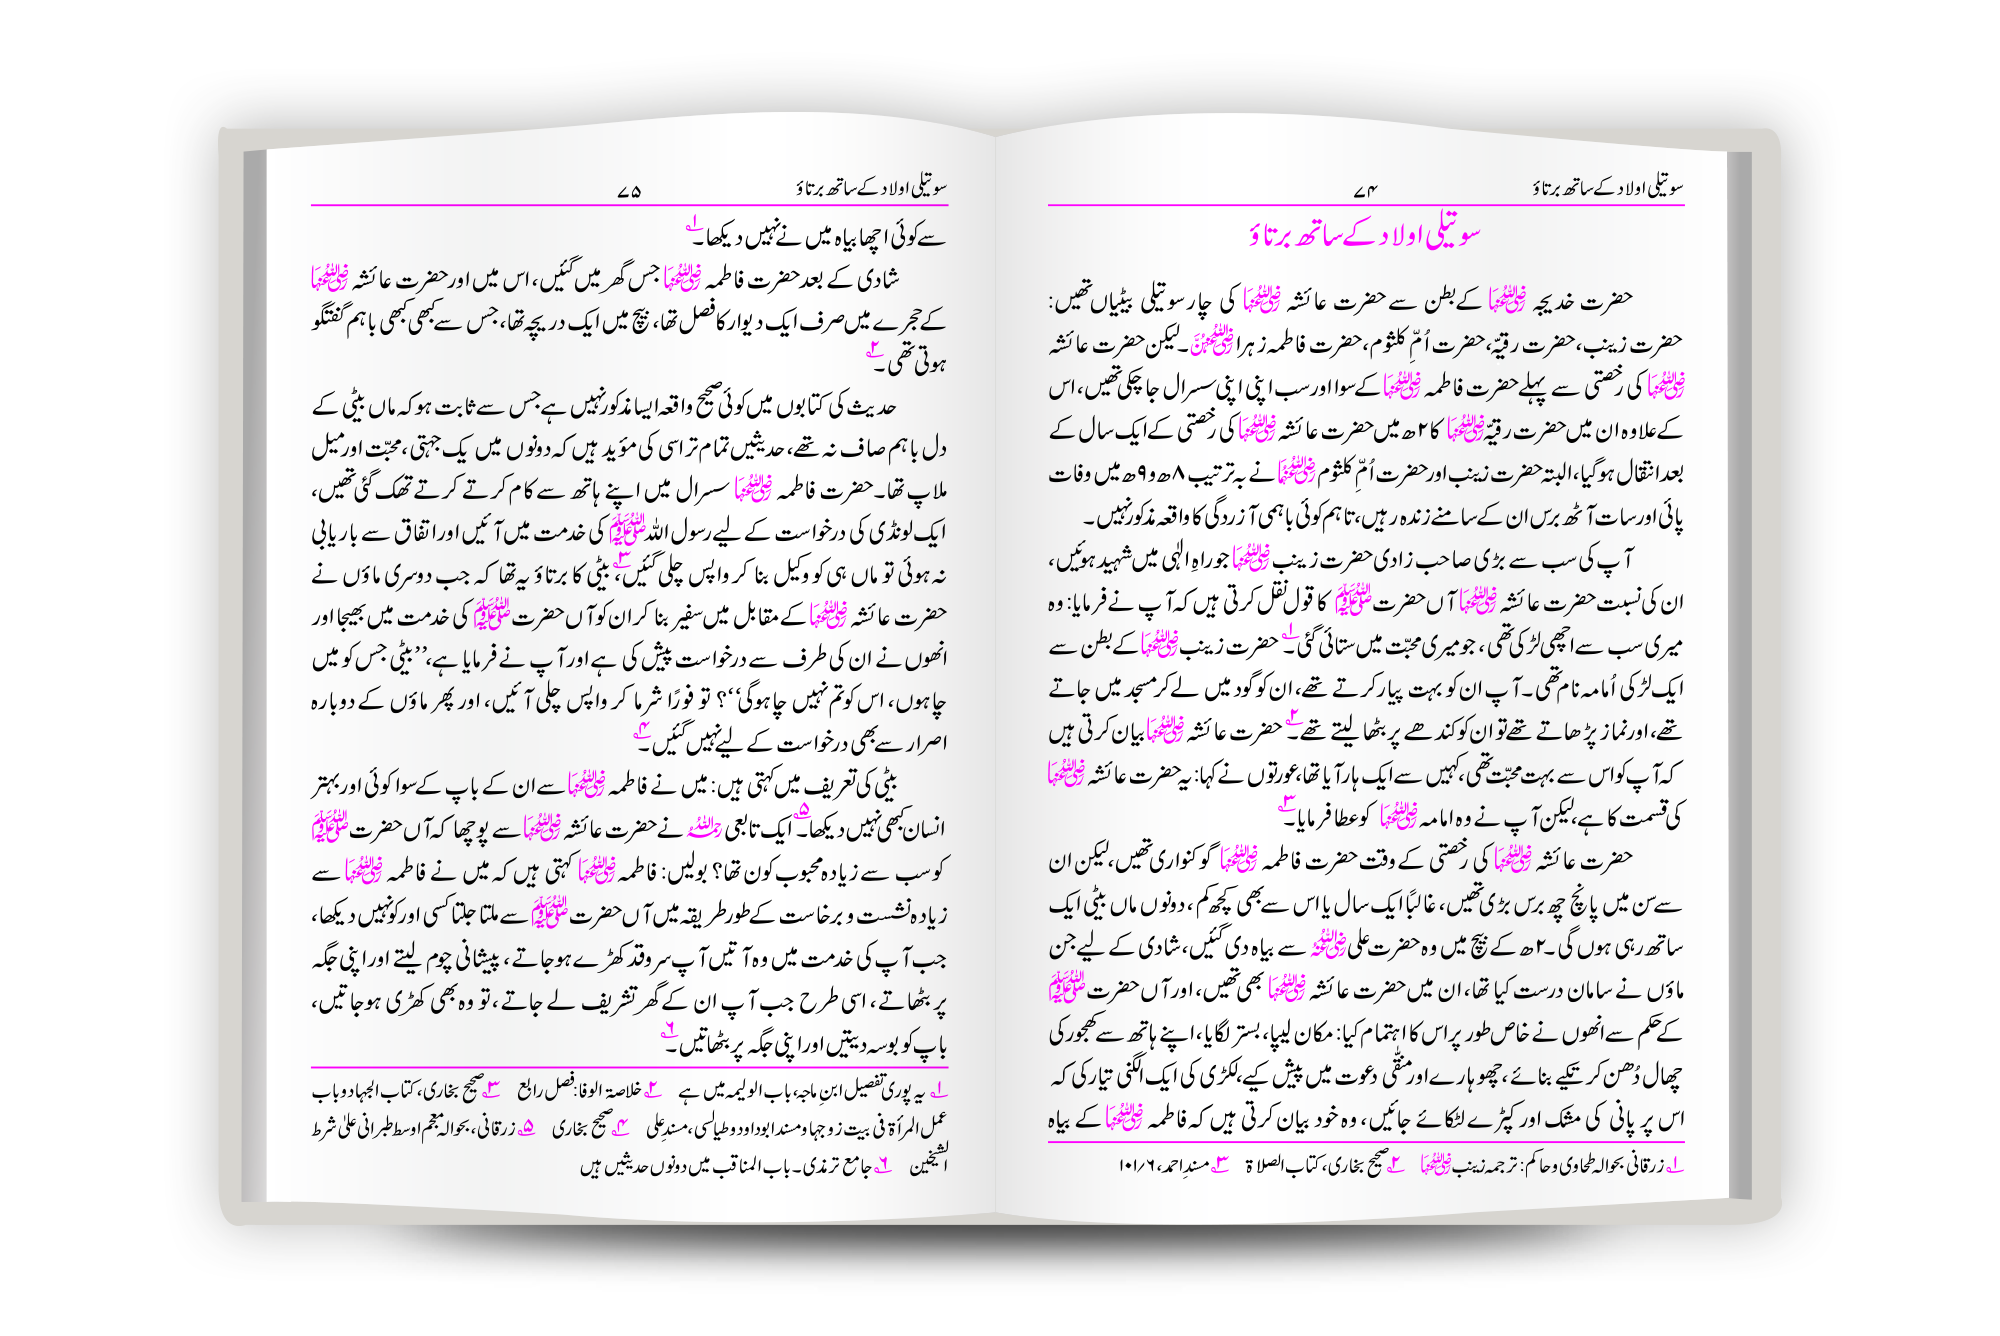 سوتیلی اولاد کے ساتھ برتاؤ ۷۴
سوتیلی اولاد کے ساتھ برتاؤ
حضرت خدیجہ رضی اللہ عنہا کے بطن سے حضرت عائشہ رضی اللہ عنہا کی چار سوتیلی بیٹیاں تھیں:
حضرت زینب، حضرت رقیّہ، حضرت اُمِّ کلثوم، حضرت فاطمہ زہرا رضی اللہ عنہنّ۔ لیکن حضرت عائشہ
رضی اللہ عنہا کی رخصتی سے پہلے حضرت فاطمہ رضی اللہ عنہا کے سوا اور سب اپنی اپنی سسرال جا چکی تھیں، اس
کے علاوہ ان میں حضرت رقیّہ رضی اللہ عنہا کا ۲ھ میں حضرت عائشہ رضی اللہ عنہا کی رخصتی کے ایک سال کے
بعد انتقال ہوگیا، البتہ حضرت زینب اور حضرت اُمِّ کلثوم رضی اللہ عنہما نے بہ ترتیب ۸ھ و ۹ھ میں وفات
پائی اور سات آٹھ برس ان کے سامنے زندہ رہیں، تاہم کوئی باہمی آزردگی کا واقعہ مذکور نہیں۔
آپ کی سب سے بڑی صاحب زادی حضرت زینب رضی اللہ عنہا جو راہِ الٰہی میں شہید ہوئیں،
ان کی نسبت حضرت عائشہ رضی اللہ عنہا آں حضرت ﷺ کا قول نقل کرتی ہیں کہ آپ نے فرمایا: وہ
میری سب سے اچھی لڑکی تھی، جو میری محبّت میں ستائی گئی۔۱ حضرت زینب رضی اللہ عنہا کے بطن سے
ایک لڑکی اُمامہ نام تھی۔ آپ ان کو بہت پیار کرتے تھے، ان کو گود میں لے کر مسجد میں جاتے
تھے، اور نماز پڑھاتے تھے تو ان کو کندھے پر بٹھا لیتے تھے۔۲ حضرت عائشہ رضی اللہ عنہا بیان کرتی ہیں
کہ آپ کو اس سے بہت محبّت تھی، کہیں سے ایک ہار آیا تھا، عورتوں نے کہا: یہ حضرت عائشہ رضی اللہ عنہا
کی قسمت کا ہے، لیکن آپ نے وہ امامہ رضی اللہ عنہا کو عطا فرمایا۔۳
حضرت عائشہ رضی اللہ عنہا کی رخصتی کے وقت حضرت فاطمہ رضی اللہ عنہا گو کنواری تھیں، لیکن ان
سے سن میں پانچ چھ برس بڑی تھیں، غالبًا ایک سال یا اس سے بھی کچھ کم، دونوں ماں بیٹی ایک
ساتھ رہی ہوں گی۔ ۲ھ کے بیچ میں وہ حضرت علی رضی اللہ عنہ سے بیاہ دی گئیں، شادی کے لیے جن
ماؤں نے سامان درست کیا تھا، ان میں حضرت عائشہ رضی اللہ عنہا بھی تھیں، اور آں حضرت ﷺ
کے حکم سے انھوں نے خاص طور پر اس کا اہتمام کیا: مکان لیپا، بستر لگایا، اپنے ہاتھ سے کھجور کی
چھال دُھن کر تکیے بنائے، چھوہارے اور منقّٰی دعوت میں پیش کیے، لکڑی کی ایک الگنی تیار کی کہ
اس پر پانی کی مشک اور کپڑے لٹکائے جائیں، وہ خود بیان کرتی ہیں کہ فاطمہ رضی اللہ عنہا کے بیاہ
۱ زرقانی بحوالہ طحاوی و حاکم: ترجمہ زینب رضی اللہ عنہا ۲ صحیح بخاری، کتاب الصلاۃ ۳ مسندِ احمد، ۶/۱۰۱
سوتیلی اولاد کے ساتھ برتاؤ ۷۵
سے کوئی اچھا بیاہ میں نے نہیں دیکھا۔۱
شادی کے بعد حضرت فاطمہ رضی اللہ عنہا جس گھر میں گئیں، اس میں اور حضرت عائشہ رضی اللہ عنہا
کے حجرے میں صرف ایک دیوار کا فصل تھا، بیچ میں ایک دریچہ تھا، جس سے کبھی کبھی باہم گفتگو
ہوتی تھی۔۲
حدیث کی کتابوں میں کوئی صحیح واقعہ ایسا مذکور نہیں ہے جس سے ثابت ہو کہ ماں بیٹی کے
دل باہم صاف نہ تھے، حدیثیں تمام تر اسی کی مؤید ہیں کہ دونوں میں یک جہتی، محبّت اور میل
ملاپ تھا۔ حضرت فاطمہ رضی اللہ عنہا سسرال میں اپنے ہاتھ سے کام کرتے کرتے تھک گئی تھیں،
ایک لونڈی کی درخواست کے لیے رسول اللہ ﷺ کی خدمت میں آئیں اور اتفاق سے باریابی
نہ ہوئی تو ماں ہی کو وکیل بنا کر واپس چلی گئیں،۳ بیٹی کا برتاؤ یہ تھا کہ جب دوسری ماؤں نے
حضرت عائشہ رضی اللہ عنہا کے مقابل میں سفیر بنا کر ان کو آں حضرت ﷺ کی خدمت میں بھیجا اور
انھوں نے ان کی طرف سے درخواست پیش کی ہے اور آپ نے فرمایا ہے، ’’بیٹی جس کو میں
چاہوں، اس کو تم نہیں چاہوگی‘‘؟ تو فورًا شرما کر واپس چلی آئیں، اور پھر ماؤں کے دوبارہ
اصرار سے بھی درخواست کے لیے نہیں گئیں۔۴
بیٹی کی تعریف میں کہتی ہیں: میں نے فاطمہ رضی اللہ عنہا سے ان کے باپ کے سوا کوئی اور بہتر
انسان کبھی نہیں دیکھا۔۵ ایک تابعی رحمہ اللہ نے حضرت عائشہ رضی اللہ عنہا سے پوچھا کہ آں حضرت ﷺ
کو سب سے زیادہ محبوب کون تھا؟ بولیں: فاطمہ رضی اللہ عنہا کہتی ہیں کہ میں نے فاطمہ رضی اللہ عنہا سے
زیادہ نشست و برخاست کے طور طریقہ میں آں حضرت ﷺ سے ملتا جلتا کسی اور کو نہیں دیکھا،
جب آپ کی خدمت میں وہ آتیں آپ سروقد کھڑے ہوجاتے، پیشانی چوم لیتے اور اپنی جگہ
پر بٹھاتے، اسی طرح جب آپ ان کے گھر تشریف لے جاتے، تو وہ بھی کھڑی ہوجاتیں،
باپ کو بوسہ دیتیں اور اپنی جگہ پر بٹھاتیں۔۶
۱ یہ پوری تفصیل ابنِ ماجہ، باب الولیمہ میں ہے ۲ خلاصۃ الوفا: فصل رابع ۳ صحیح بخاری، کتاب الجہاد و باب
عمل المرأۃ في بیت زوجہا و مسند ابوداود وطیالسی، مسندِ علی ۴ صحیح بخاری ۵ زرقانی، بحوالہ معجم اوسط طبرانی علیٰ شرط
الشیخین ۶ جامع ترمذی۔ باب المناقب میں دونوں حدیثیں ہیں